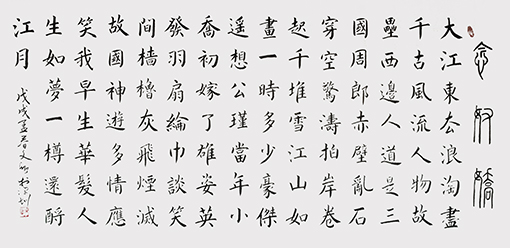 念奴嬌
大江東去浪淘盡
千古風流人物故
壘西邊人道是三
國周郎赤壁亂石
穿空驚濤拍岸卷
起千堆雪江山如
畫一時多少豪傑
遙想公瑾當年小
喬初嫁了雄姿英
發羽扇綸巾談笑
間檣櫓灰飛煙滅
故國神遊多情應
笑我早生華髮人
生如夢一樽還酹
江月
戊戌孟春文